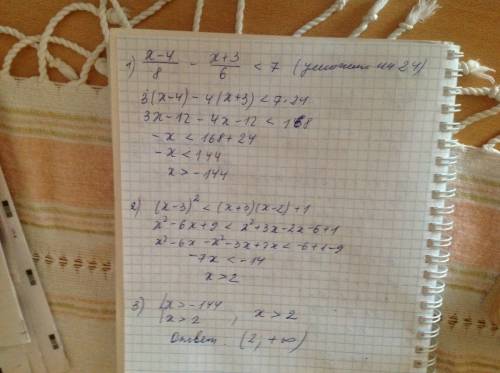 1) (x-4)/8 - (x+3)/6 < 7 (умножить на 24)
3(x-4) - 4(x+3) < 7·24
3x-12-4x-12 < 168
-x < 168+24
-x < 144
x > -144
2) (x-3)² < (x+3)(x-2)+1
x²-6x+9 < x²+3x-2x-6+1
x²-6x-x²-3x+2x < -6+1-9
-7x < -14
x > 2
3) { x > -144
x > 2 , x > 2
Ответ: (2, +∞)